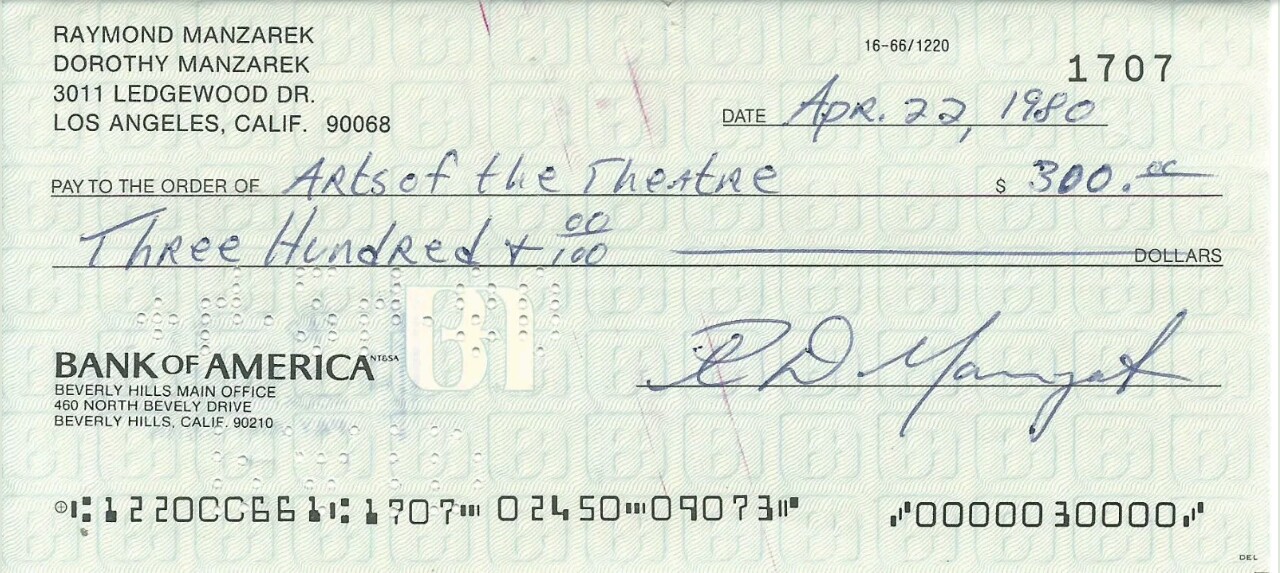 RAYMOND MANZAREK
DOROTHY MANZAREK
3011 LEDGEWOOD DR.
LOS ANGELES, CALIF. 90068
16-66/1220
1707
DATE Apr. 22, 1980
PAY TO THE ORDER OF Arts of the Theatre $ 300.00
Three Hundred + 00/100 DOLLARS
BANK OF AMERICA NT&SA
BEVERLY HILLS MAIN OFFICE
460 NORTH BEVELY DRIVE
BEVERLY HILLS, CALIF. 90210
R D Manzarek
⑆122000661⑆1707⑉02450⑉09073⑈ ⑇0000030000⑇
DEL